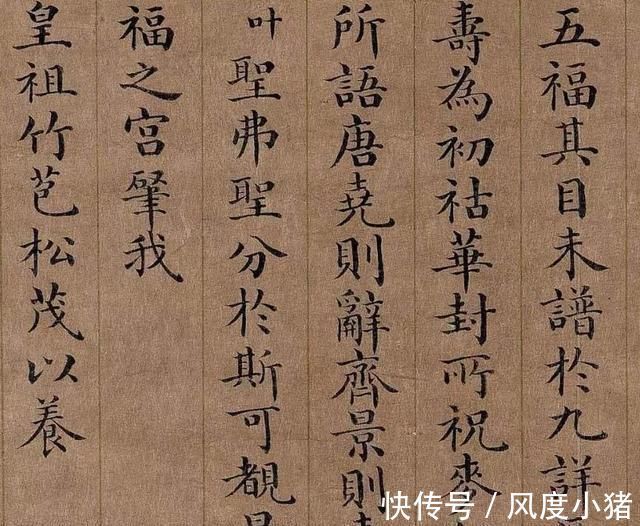 五福其目未譜於九詳
壽為初祜華封所祝麥
所語唐堯則辭齊景則
叶聖弗聖分於斯可覩
福之宮肇我
皇祖竹苞松茂以養
快传号 / 风度小猪